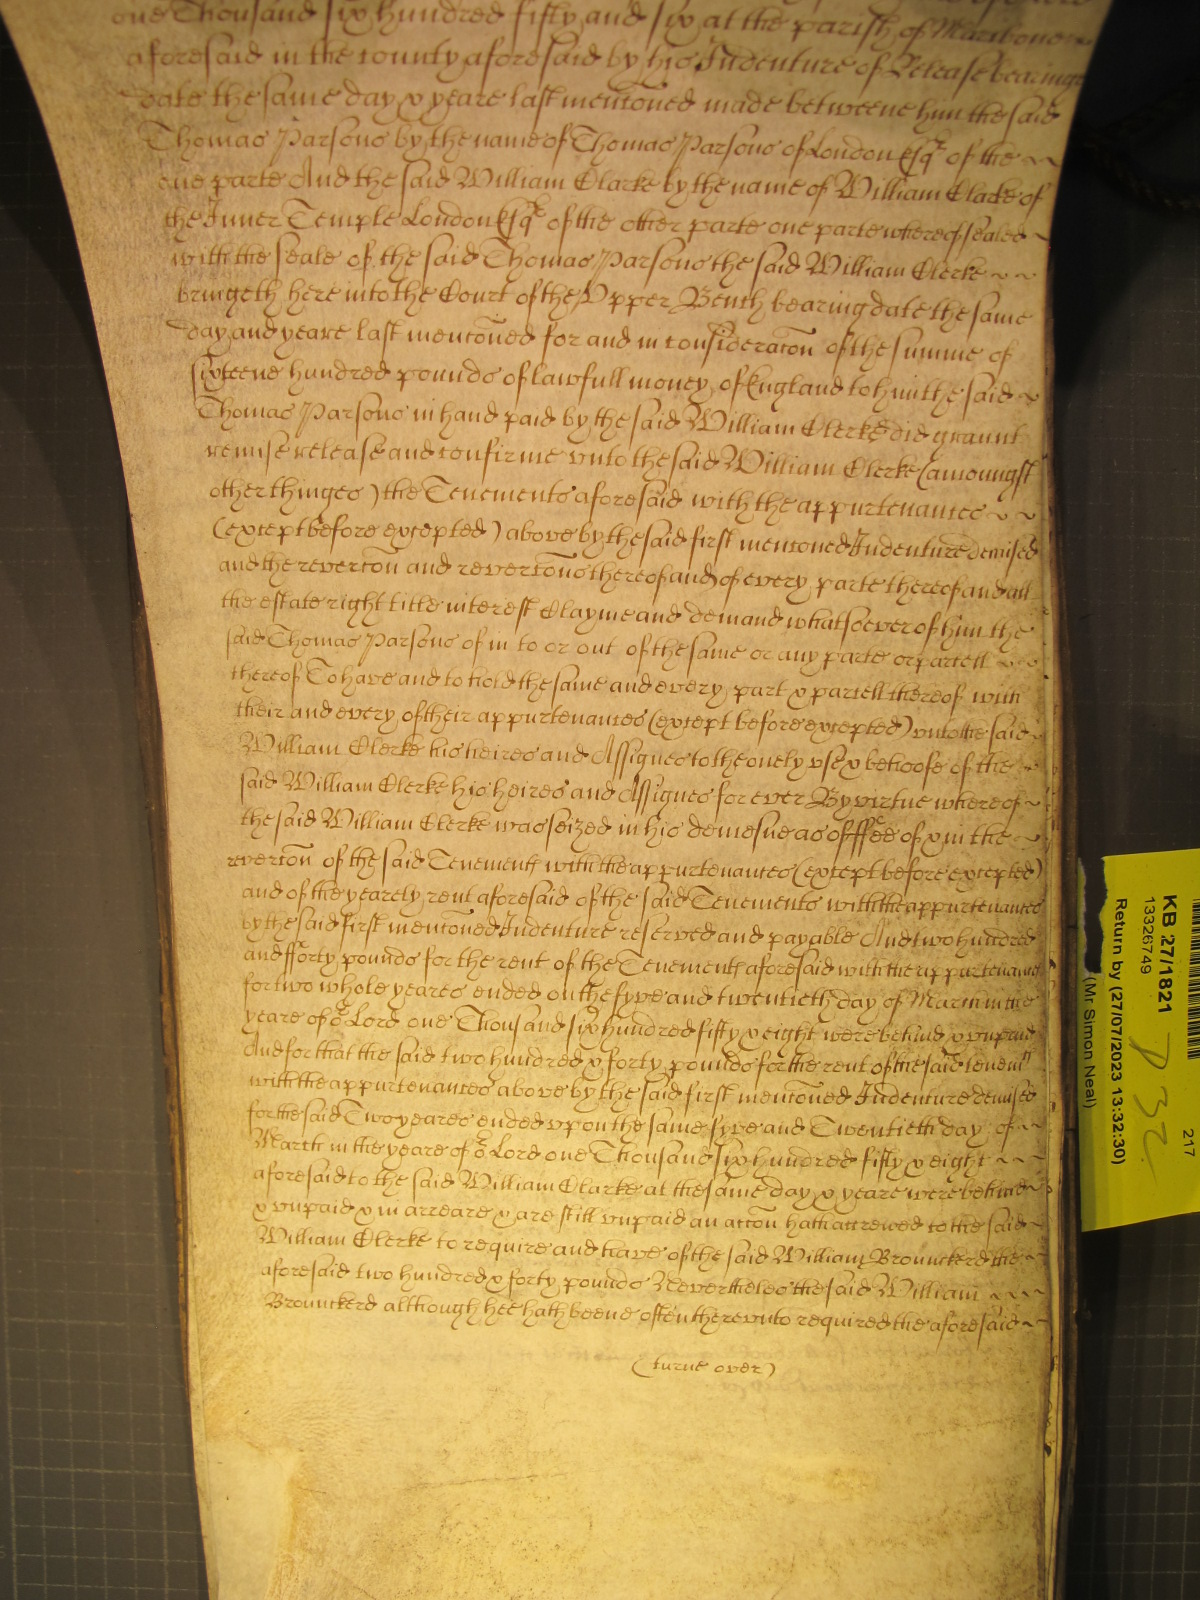 one Thousand six hundred fifty and six at the parish of Maribone
aforesaid in the county aforesaid by his Indenture of Release bearinge
date the same day & yeare last menconed made betweene him the said
Thomas Parsons by the name of Thomas Parsons of London Esqr of the
one parte And the said William Clarke by the name of William Clarke of
the Inner Temple London Esqr of the other parte one parte whereof sealed
with the seale of the said Thomas Parsons the said William Clerke
bringeth here into the Court of the Upper Bench bearing date the same
day and yeare last menconed for and in consideracon of the summe of
sixteene hundred pounds of lawfull money of England to him the said
Thomas Parsons in hand paid by the said William Clerke did graunt
remise release and confirme unto the said William Clerke (amoungst
other thinges) the Tenements aforesaid with the appurtenances
(except before excepted) above by the said first menconed Indenture demised
and the revercon and revercons thereof and of every parte thereof and all
the estate right title interest Clayme and demand whatsoever of him the
said Thomas Parsons of in to or out of the same or any parte or parcell
thereof To have and to hold the same and every part & parcell thereof with
their and every of their appurtenances (except before excepted) unto the said
William Clerke his heires and Assignes to the onely use & behoofe of the
said William Clerke his heires and Assignes for ever By virtue whereof
the said William Clerke was seized in his demesne as of ffee of & in the
revercon of the said Tenements with the appurtenances (except before excepted)
and of the yearely rent aforesaid of the said Tenements with the appurtenances
by the said first menconed Indenture reserved and payable And two hundred
and fforty pounds for the rent of the Tenements aforesaid with the appurtenances
for two whole yeares ended on the fyve and twentieth day of March in the
yeare of or Lord one Thousand six hundred fifty & eight were behind & unpaid
And for that the said two hundred & forty pounds for the rent of the said tenemts
with the appurtenances above by the said first menconed Indenture demised
for the said Two yeares ended upon the same fyve and Twentieth day of
March in the yeare of or Lord one Thousand six hundred fifty & eight
aforesaid to the said William Clarke at the same day & yeare were behind
& unpaid & in arreare & are still unpaid an accon hath accrewed to the said
William Clerke to require and have of the said William Brounckerd the
aforesaid two hundred & forty pounds Neverthelesse the said William
Brounckerd although hee hath beene often thereunto required the aforesaid
(turne over)
KB 27/1821
13326749
Return by (27/07/2023 13:32:30)
(Mr Simon Neal)
217